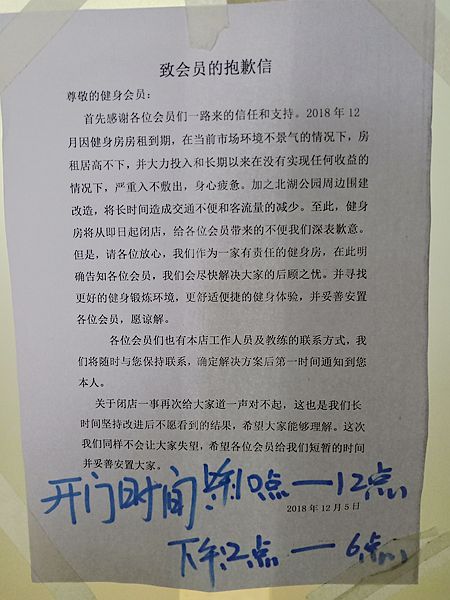 致会员的抱歉信
尊敬的健身会员：
首先感谢各位会员们一路来的信任和支持。2018 年 12
月因健身房房租到期，在当前市场环境不景气的情况下，房
租居高不下，并大力投入和长期以来在没有实现任何收益的
情况下，严重入不敷出，身心疲惫。加之北湖公园周边围建
改造，将长时间造成交通不便和客流量的减少。至此，健身
房将从即日起闭店，给各位会员带来的不便我们深表歉意。
但是，请各位放心，我们作为一家有责任的健身房，在此明
确告知各位会员，我们会尽快解决大家的后顾之忧。并寻找
更好的健身锻炼环境，更舒适便捷的健身体验，并妥善安置
各位会员，愿谅解。
各位会员们也有本店工作人员及教练的联系方式，我
们将随时与您保持联系，确定解决方案后第一时间通知到您
本人。
关于闭店一事再次给大家道一声对不起，这也是我们长
时间坚持改进后不愿看到的结果，希望大家能够理解。这次
我们同样不会让大家失望，希望各位会员给我们短暂的时间
并妥善安置大家。
开门时间 10点一12点
2018 年 12 月 5 日
下午2点 一 6点